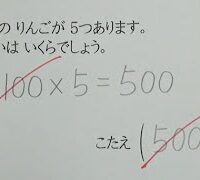 の りんごが 5つあります。
いは いくらでしょう。
100×5=500
こたえ (500